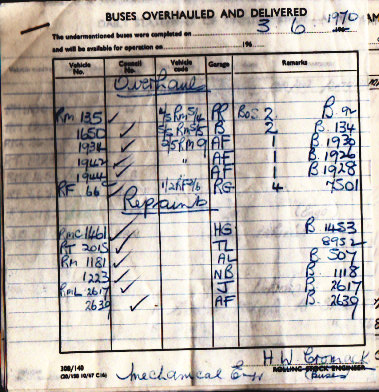 BUSES OVERHAULED AND DELIVERED
The undermentioned buses were completed on 3 6 1970
and will be available for operation on 196
Vehicle No. Consul No. Vehicle code Garage Remarks
Overhauls
RM 135 ✓ PR BOS 2 B. 92
1650 ✓ B 2 B. 134
1934 ✓ AF 1 B 1930
1942 ✓ " AF 1 B 1926
1944 ✓ AF 1 B 1928
RF 66 ✓ 1/2RF2/6 RG 4 7501
Repaints
RMC 1461 ✓ HG B 1453
RT 2015 ✓ TL 8952
RM 1181 ✓ AL B 507
1223 ✓ NB B 1118
RML 2617 ✓ J B 2617
2639 ✓ AF B 2639
308/140
(20/150 10/67 C14)
H W Cromack
ROLLING STOCK ENGINEER
Mechanical Eng (Buses)